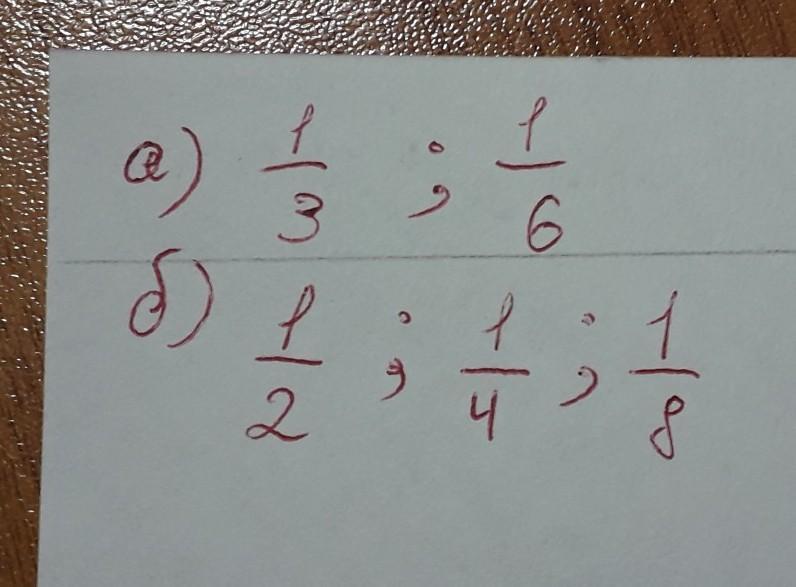 а) 1/3 ; 1/6
б) 1/2 ; 1/4 ; 1/8